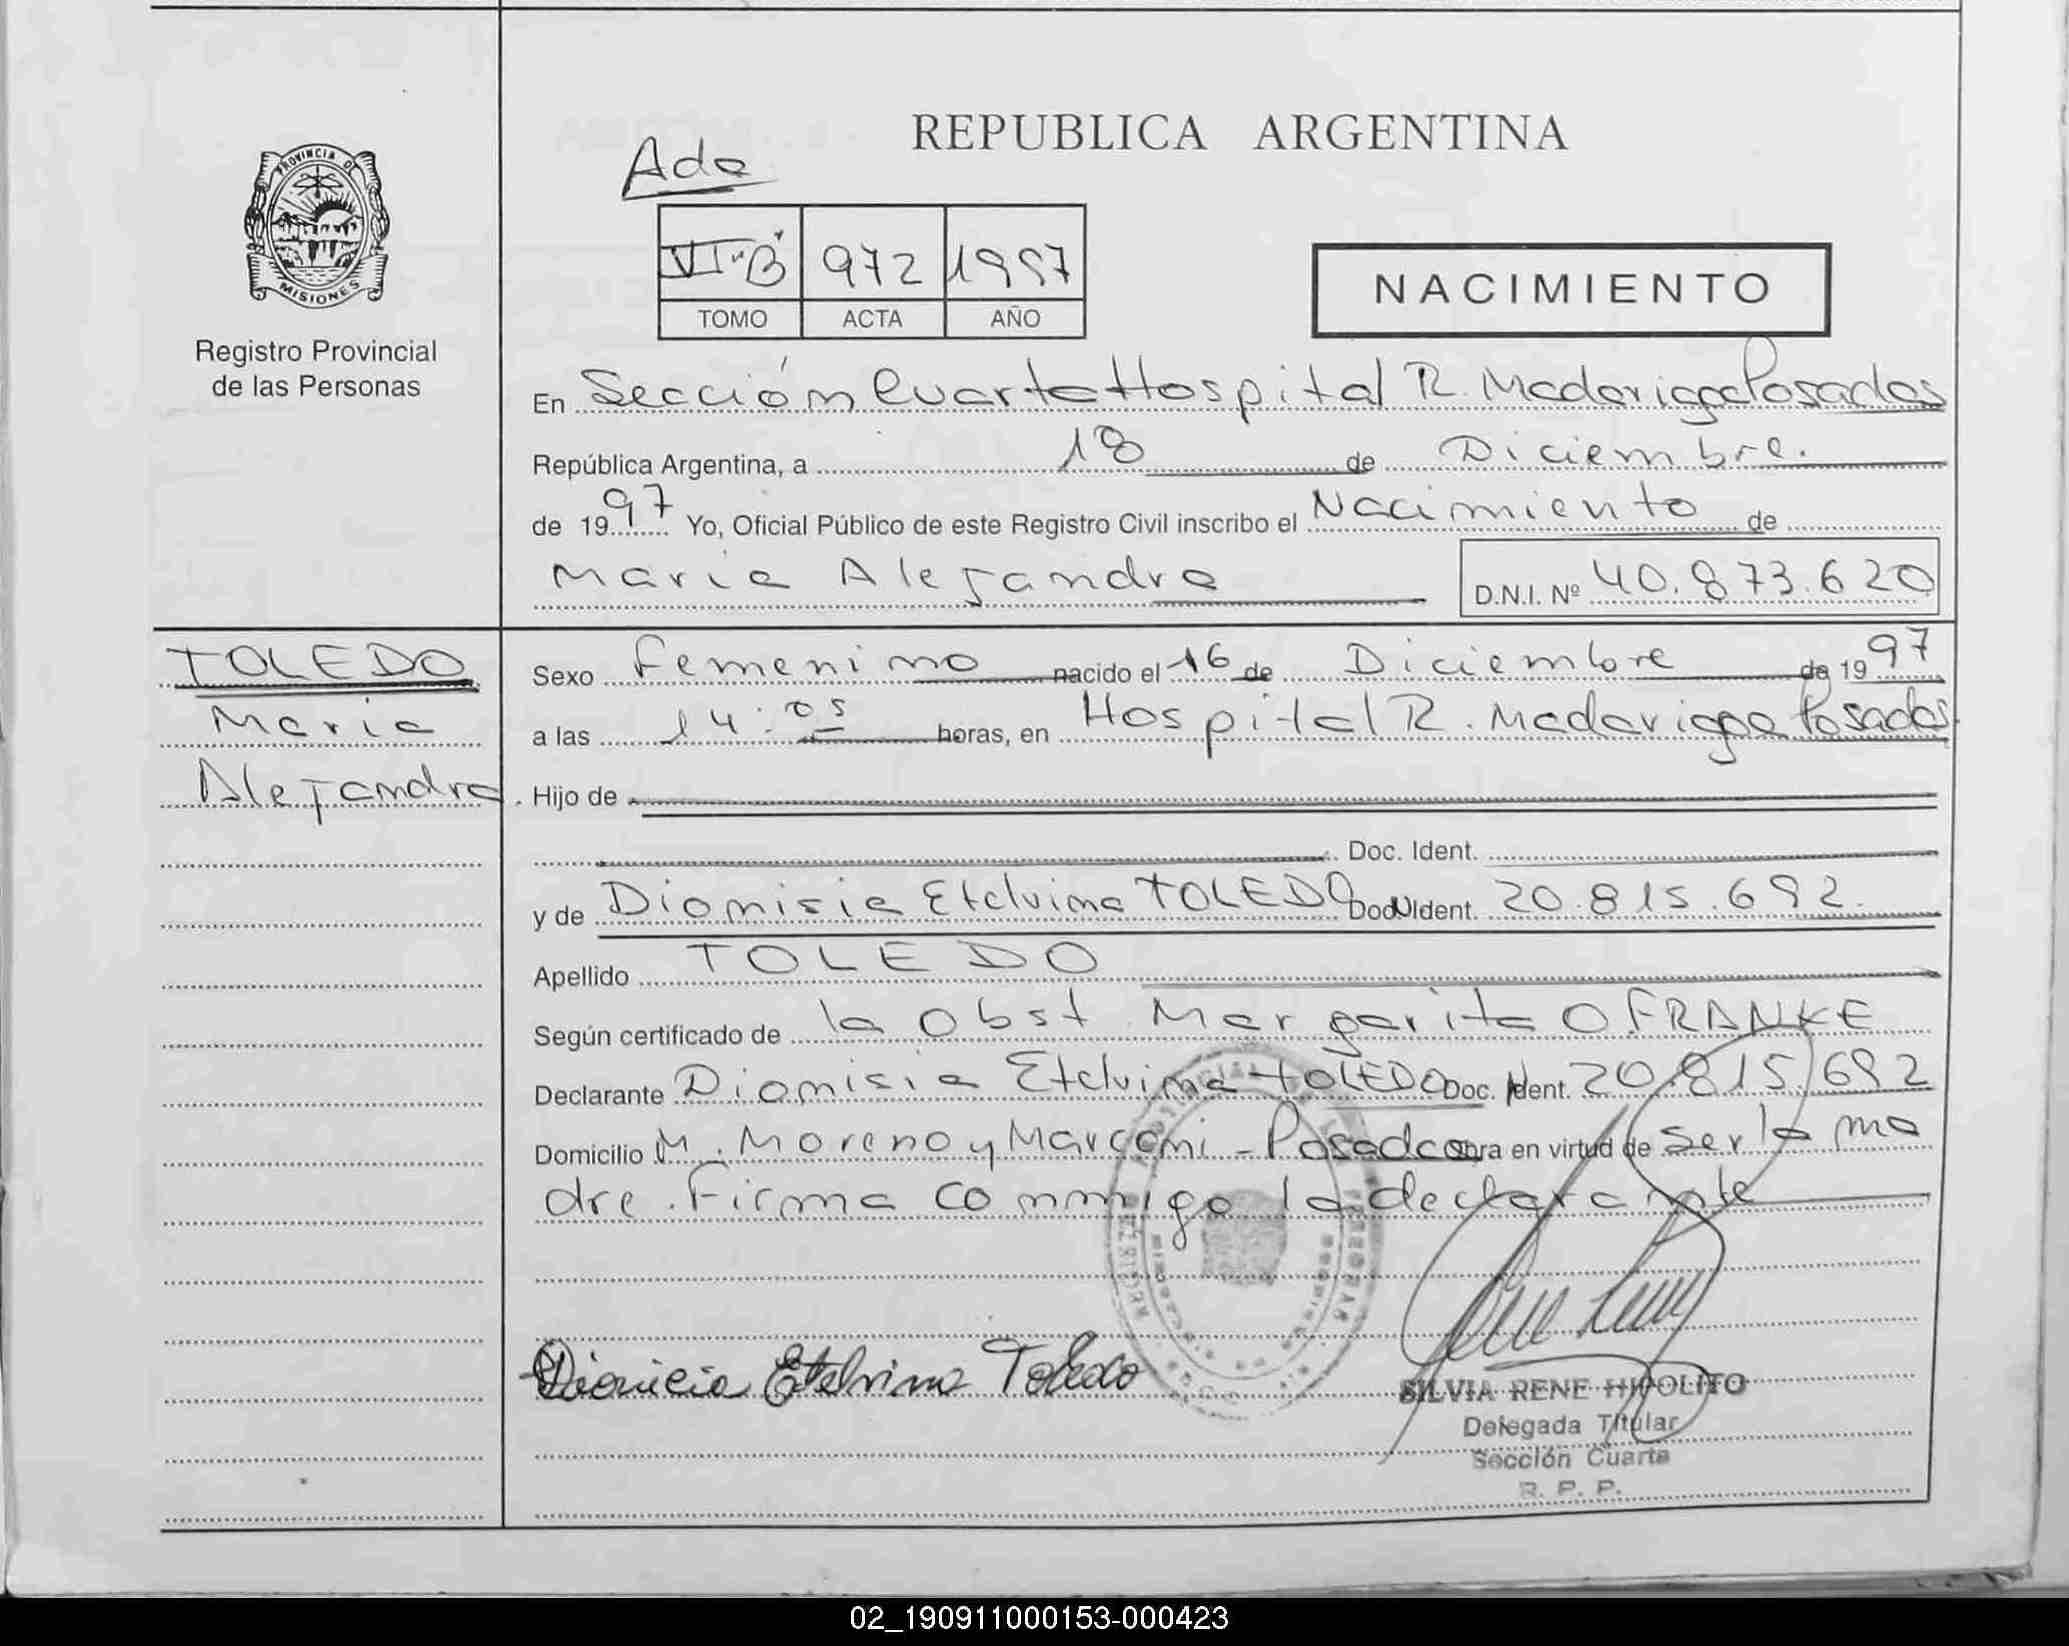 PROVINCIA DE
MISIONES
Registro Provincial
de las Personas
REPUBLICA ARGENTINA
Ada
VI-B 972 1997
TOMO ACTA AÑO
NACIMIENTO
En Sección Cuarta Hospital R. Madariaga Posadas
República Argentina, a 18 de Diciembre.
de 1997 Yo, Oficial Público de este Registro Civil inscribo el Nacimiento de
Maria Alejandra D.N.I. Nº 40.873.620
TOLEDO
Maria
Alejandra
Sexo Femenino nacido el 16 de Diciembre de 1997
a las 14:05 horas, en Hospital R. Madariaga Posadas
Hijo de
Doc. Ident.
y de Dionisia Etelvina TOLEDO Doc. Ident. 20.815.692
Apellido TOLEDO
Según certificado de la Obst. Margarita O FRANKE
Declarante Dionisia Etelvina TOLEDO Doc. Ident. 20.815.692
Domicilio M. Moreno y Marconi - Posadas obra en virtud de ser la ma
dre. Firma conmigo la declarante
Dionicia Etelvina Toledo
SILVIA RENE HIPOLITO
Delegada Titular
Sección Cuarta
R. P. P.
02_190911000153-000423